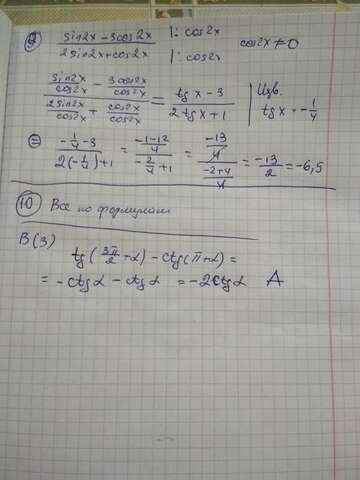 9) (sin2x - 3cos2x)/(2sin2x + cos2x) |: cos2x |: cos2x cos2x ≠ 0
(sin2x/cos2x - 3cos2x/cos2x)/(2sin2x/cos2x + cos2x/cos2x) = (tgx - 3)/(2tgx + 1) | Изв. tgx = -1/4
= (-1/4 - 3)/(2(-1/4) + 1) = ((-1-12)/4)/(-2/4 + 1) = (-13/4)/((-2+4)/4) = -13/2 = -6,5
10) Все по формулам
В(3)
tg(3π/2 + α) - ctg(π + α) =
= -ctgα - ctgα = -2ctgα А